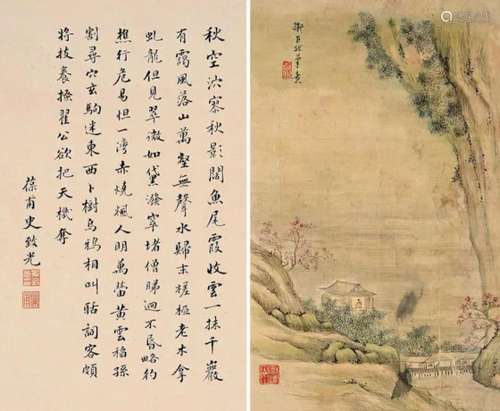 秋空泬寥秋影闊魚尾霞收雲一抹千巖
有靄風落山萬壑無聲水歸末槎枒老木拿
虬龍但見翠微如黛潑窣堵僧歸迥不昏略彴
樵行危易怛一灣赤燒煖人明萬畝黃雲稻孫
割尋穴玄駒迷東西卜樹烏鴉相叫聒詞客頻
將技養撫翟公欲把天機奪
葆甫史致光